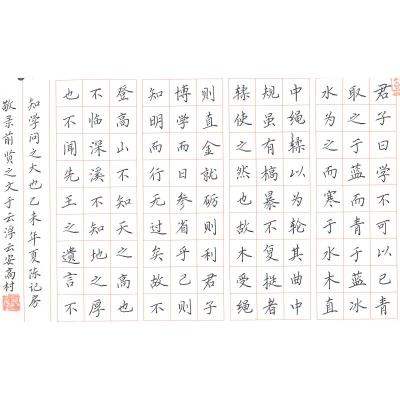 君子曰学不可以已青
取之于蓝而青于蓝冰
水为之而寒于水木直
中绳輮以为轮其曲中
规虽有槁暴不复挺者
輮使之然也故木受绳
则直金就砺则利君子
博学而日参省乎己则
知明而行无过矣故不
登高山不知天之高也
不临深溪不知地之厚
也不闻先王之遗言不
知学问之大也乙未年夏陈记房
敬录前贤之文于云浮云安高村